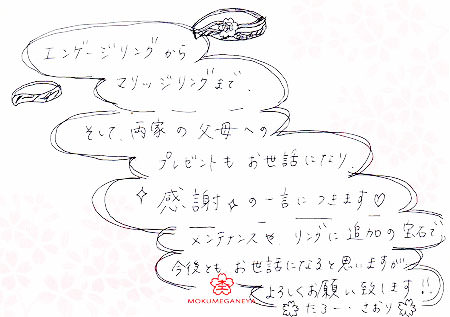 エンゲージリングから
マリッジリングまで、
そして、両家の父母への
プレゼントもお世話になり、
感謝の一言につきます♡
メンテナンスや リングに追加の宝石で、
今後とも お世話になると思いますが、
よろしくお願い致します!!
たろー・さおり
MOKUMEGANEYA